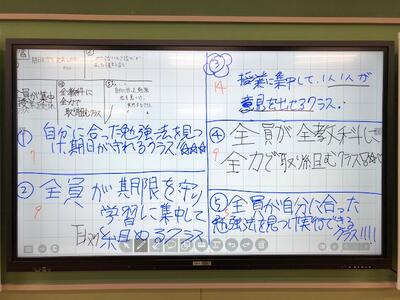 ① 自分に合った勉強法を見つ
け、期日が守れるクラス
7
② 全員が期限を守り
学習に集中して
取り組めるクラス
9
③
14
授業に集中して、1人1人が
意見を出せるクラス!
④ 全員が全教科に
全力で取り組むクラス
9
⑤ 全員が自分に合った
勉強法を見つけ実行できる
クラス!!!!
全員が集中
全教科に
全力で
取り組むクラス